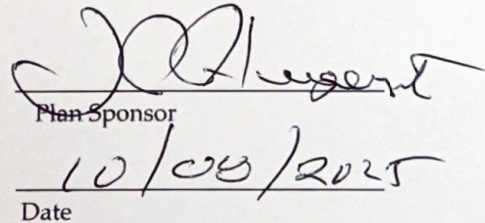 Plan Sponsor
10/08/2025
Date